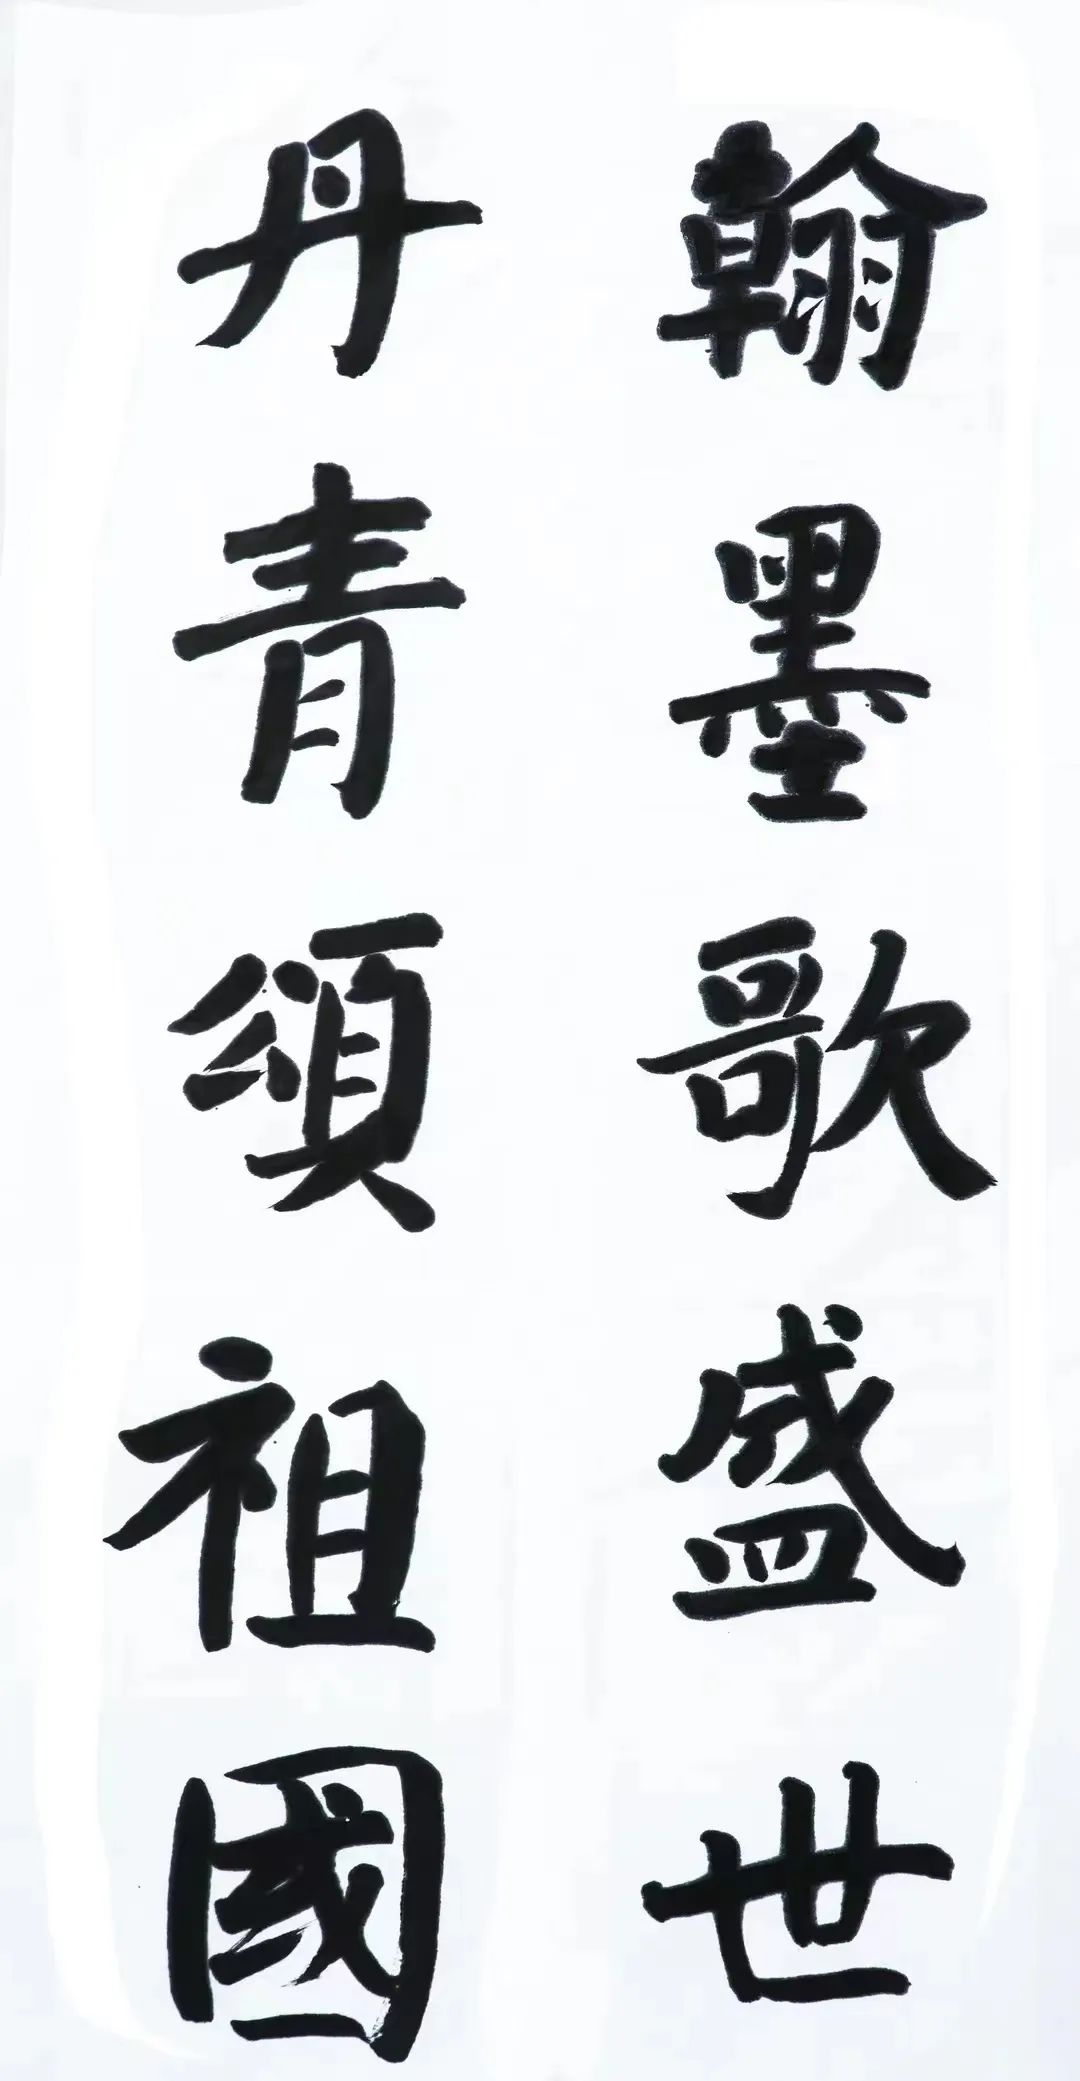 翰墨歌盛世
丹青頌祖國